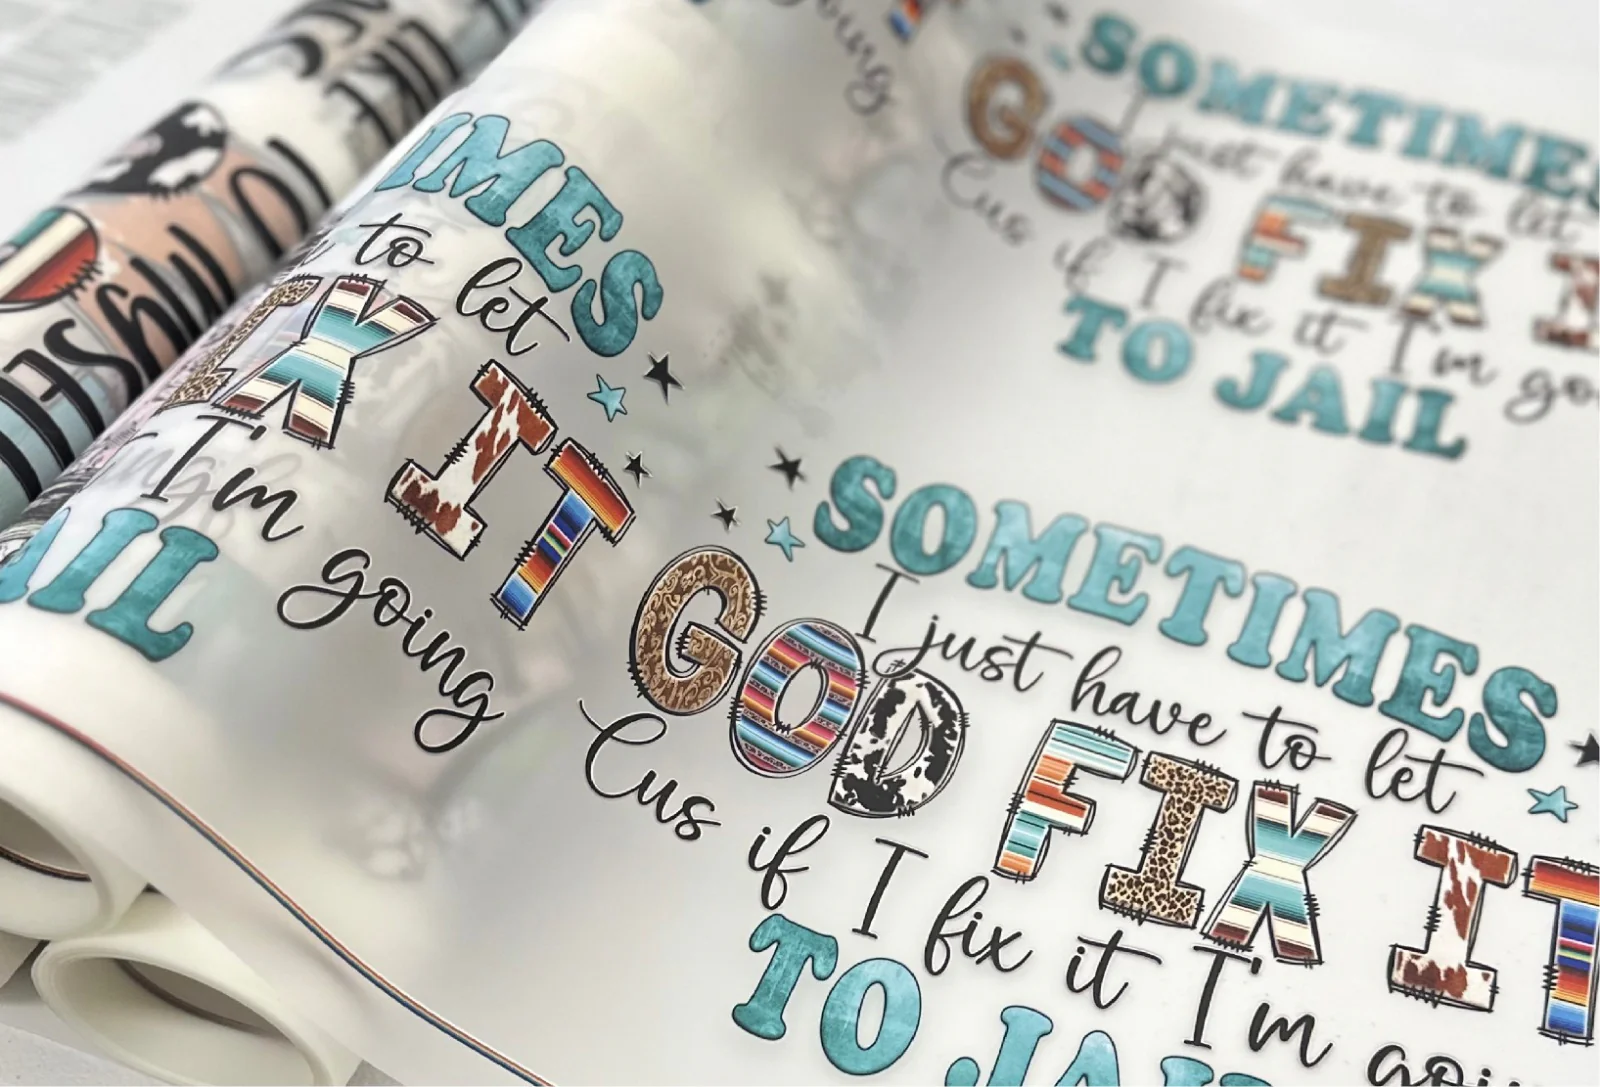 oing
SOMETIMES
I just have to let
GOD FIX I
Cus if I fix it I'm go
TO JAIL
IMES
to let
IX IT
I'm going
AIL
SOMETIMES
I just have to let
GOD FIX IT
Cus if I fix it I'm goi
TO JAI